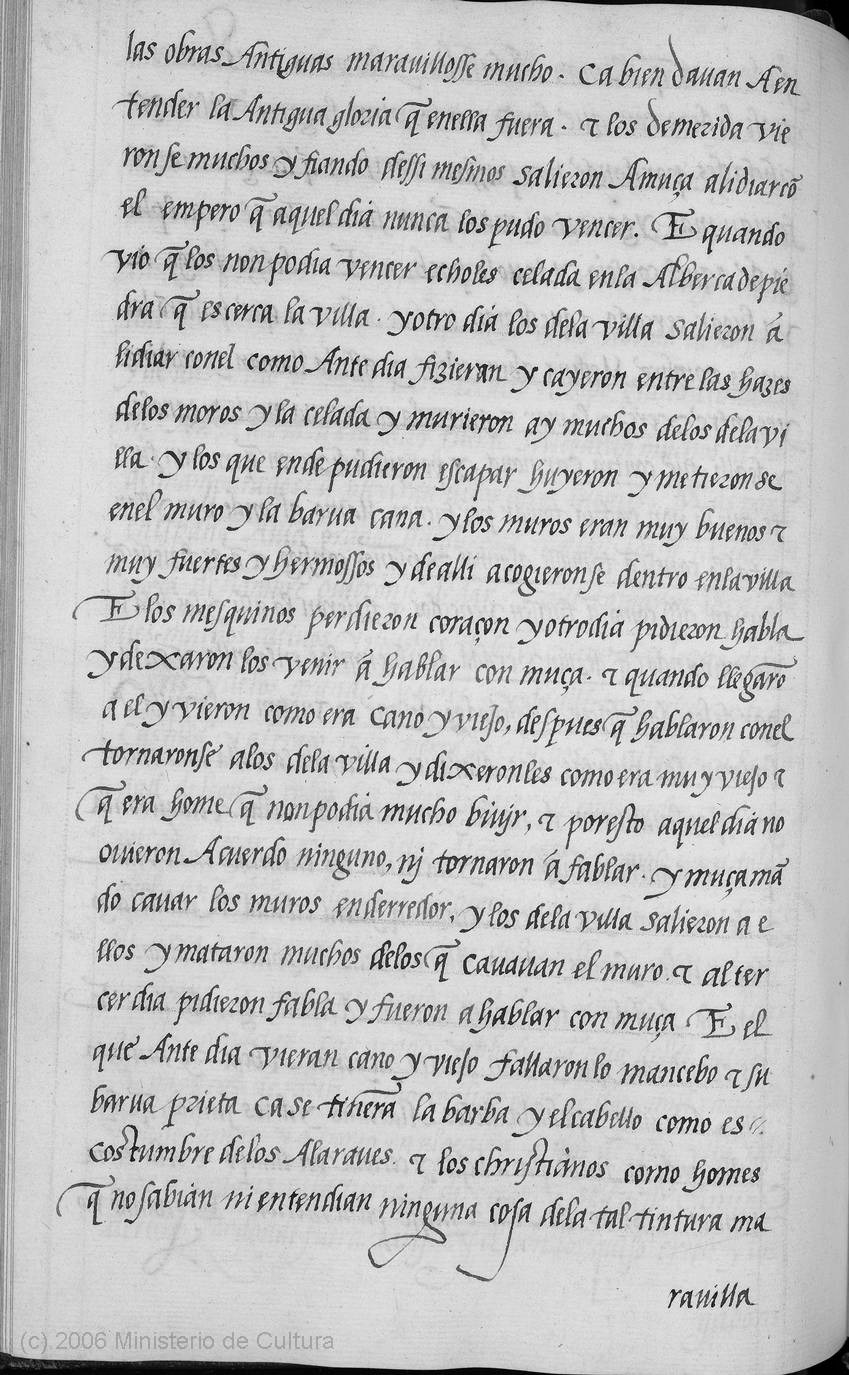 las obras Antiguas marauillosse mucho. Ca bien dauan A en
tender la Antigua gloria q̃ enella fuera. τ los demerida vie
ronse muchos y fiando dessi mesmos salieron A muça alidiar cõ
el empero q̃ aquel dia nunca los pudo vencer. E quando
vio q̃ los non podia vencer echoles celada enla Alberca de pie
dra q̃ es cerca la villa. y otro dia los dela villa salieron ã
lidiar conel como Ante dia fizieran y cayeron entre las hazes
delos moros y la celada y murieron ay muchos delos dela vi
lla. y los que ende pudieron escapar huyeron y metieronse
enel muro y la barua cana. y los muros eran muy buenos τ
muy fuertes y hermossos y de alli acogieronse dentro enla villa
E los mesquinos perdieron coraçon y otro dia pidieron habla
y dexaron los venir ã hablar con muça. τ quando llegarõ
a el y vieron como era cano y viejo, despues q̃ hablaron conel
tornaronse alos dela villa y dixeronles como era muy viejo τ
q̃ era home q̃ non podia mucho biujr, τ por esto aquel dia no
ouieron Acuerdo ninguno, nj tornaron ã fablar. y muça mã
do cauar los muros enderredor, y los dela villa salieron a e
llos y mataron muchos delos q̃ cauauan el muro. τ al ter
cer dia pidieron fabla y fueron a hablar con muça E el
que Ante dia vieran cano y viejo fallaron lo mancebo τ su
barua prieta ca se tiñerã la barba y el cabello como es
costumbre delos Alaraues. τ los christianos como homes
q̃ no sabian ni entendian ninguna cosa dela tal tintura ma
rauilla
(c) 2006 Ministerio de Cultura